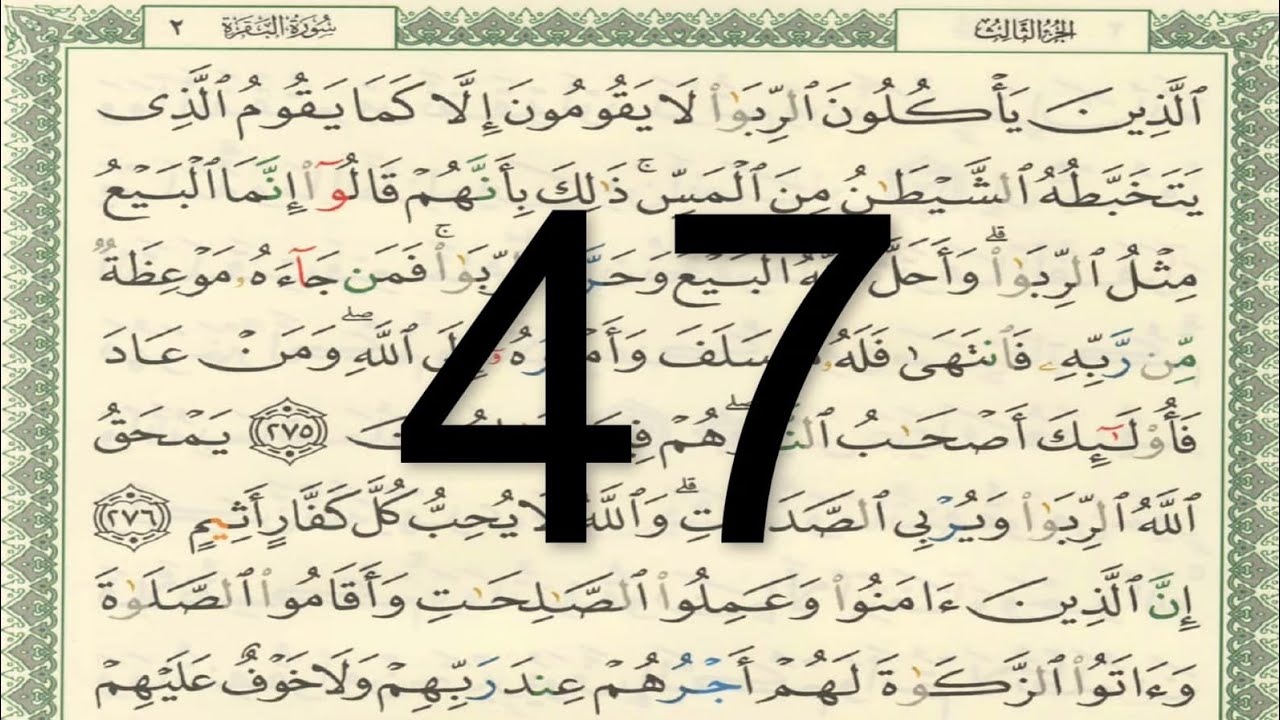 الجزء الثالث
سورة البقرة ٢
ٱلَّذِينَ يَأۡكُلُونَ ٱلرِّبَوٰاْ لَا يَقُومُونَ إِلَّا كَمَا يَقُومُ ٱلَّذِى
يَتَخَبَّطُهُ ٱلشَّيۡطَٰنُ مِنَ ٱلۡمَسِّۚ ذَٰلِكَ بِأَنَّهُمۡ قَالُوٓاْ إِنَّمَا ٱلۡبَيۡعُ
مِثۡلُ ٱلرِّبَوٰاْۗ وَأَحَلَّ ٱللَّهُ ٱلۡبَيۡعَ وَحَرَّمَ ٱلرِّبَوٰاْۚ فَمَن جَآءَهُۥ مَوۡعِظَةٌ
مِّن رَّبِّهِۦ فَٱنتَهَىٰ فَلَهُۥ مَا سَلَفَ وَأَمۡرُهُۥٓ إِلَى ٱللَّهِۖ وَمَنۡ عَادَ
فَأُوْلَٰٓئِكَ أَصۡحَٰبُ ٱلنَّارِۖ هُمۡ فِيهَا خَٰلِدُونَ ٢٧٥ يَمۡحَقُ
ٱللَّهُ ٱلرِّبَوٰاْ وَيُرۡبِى ٱلصَّدَقَٰتِۗ وَٱللَّهُ لَا يُحِبُّ كُلَّ كَفَّارٍ أَثِيمٍ ٢٧٦
إِنَّ ٱلَّذِينَ ءَامَنُواْ وَعَمِلُواْ ٱلصَّٰلِحَٰتِ وَأَقَامُواْ ٱلصَّلَوٰةَ
وَءَاتَوُاْ ٱلزَّكَوٰةَ لَهُمۡ أَجۡرُهُمۡ عِندَ رَبِّهِمۡ وَلَا خَوۡفٌ عَلَيۡهِمۡ
47